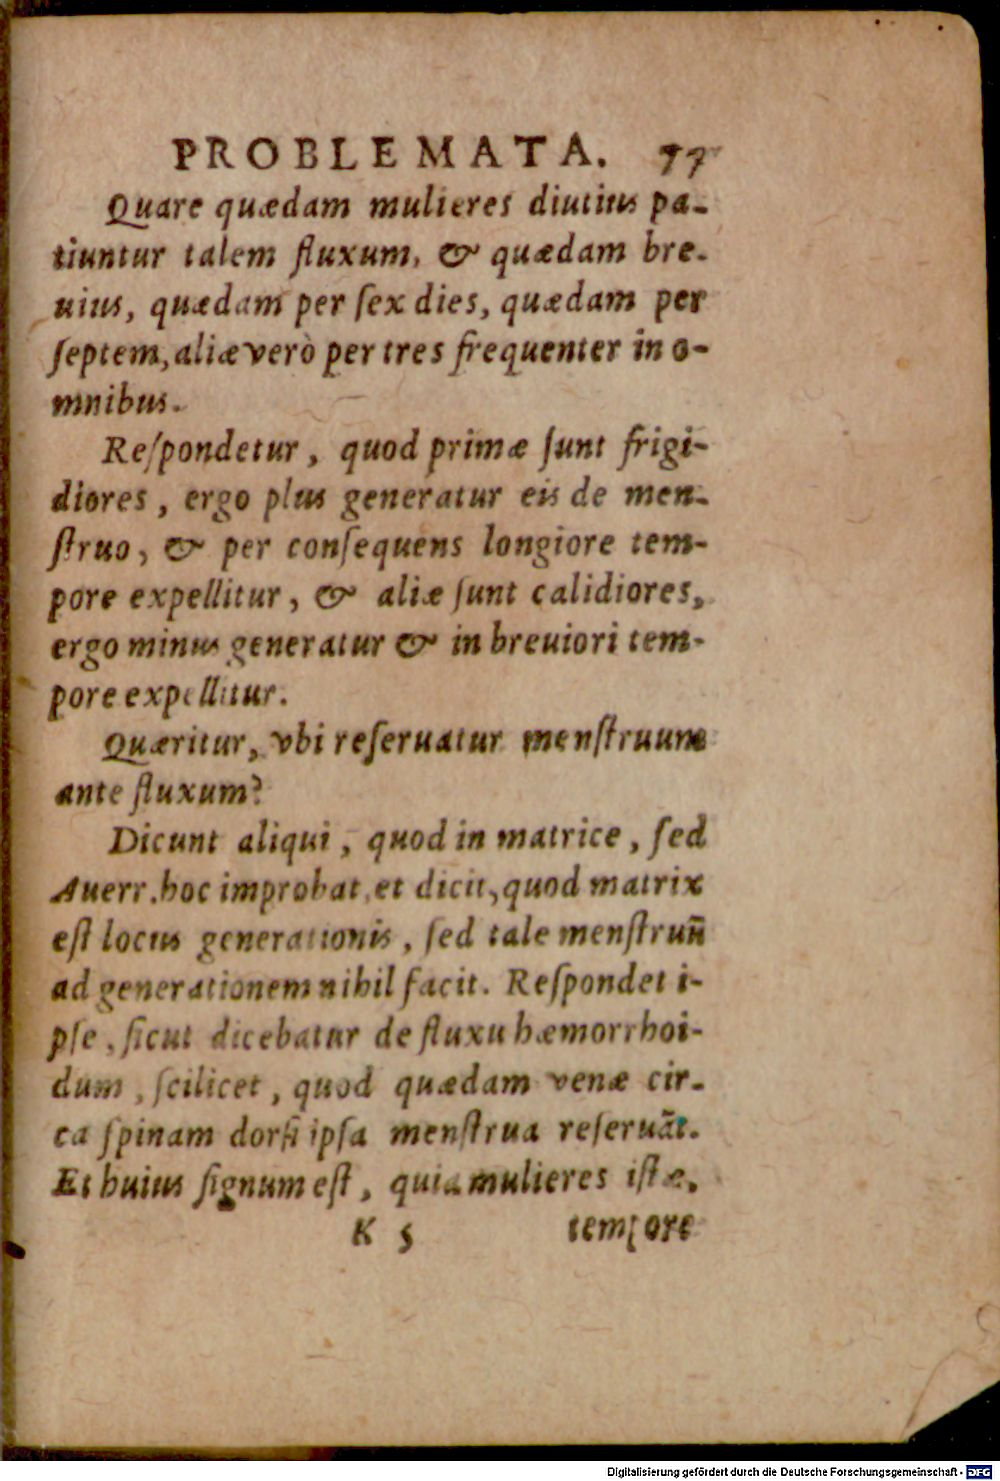 PROBLEMATA. 77
Quare quædam mulieres diutius pa-
tiuntur talem fluxum, & quædam bre-
uius, quædam per ſex dies, quædam per
ſeptem, aliæ verò per tres frequenter in o-
mnibus.
Reſpondetur, quod primæ ſunt frigi-
diores, ergo plus generatur eis de men-
ſtruo, & per conſequens longiore tem-
pore expellitur, & aliæ ſunt calidiores,
ergo minus generatur & in breuiori tem-
pore expellitur.
Quæritur, vbi reſeruatur menſtruum
ante fluxum?
Dicunt aliqui, quod in matrice, ſed
Auerr. hoc improbat, et dicit, quod matrix
eſt locus generationis, ſed tale menſtruũ
ad generationem nihil facit. Reſpondet i-
pſe, ſicut dicebatur de fluxu hæmorrhoi-
dum, ſcilicet, quod quædam venæ cir-
ca ſpinam dorſi ipſa menſtrua reſeruãt.
Et huius ſignum eſt, quia mulieres iſtæ,
K 5 tempore
Digitalisierung gefördert durch die Deutsche Forschungsgemeinschaft - DFG